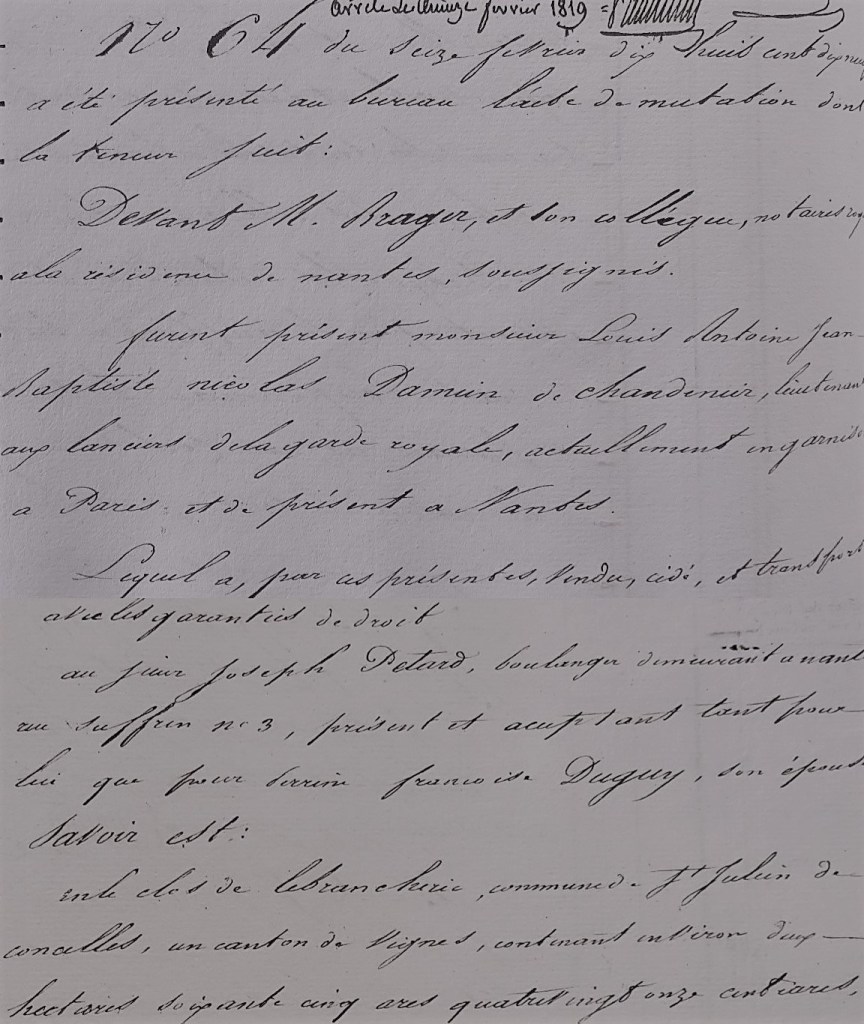 arrêté le quinze fevrier 1819
N° 64 du seize fevrier dix huit cent dix neuf
a été présenté au bureau l'acte de mutation dont
la teneur suit :
Devant M. Brager, et son collègue, notaires roy
a la résidence de nantes, soussignés.
furent présent monsieur Louis Antoine Jean-
Baptiste nicolas Damien de chandenier, lieutenant
aux lanciers de la garde royale, actuellement en garniso
a Paris et de présent a Nantes.
Lequel a, par ces présentes, vendu, cédé, et transport
avec les garanties de droit
au sieur Joseph Petard, boulanger demeurant a nant
rue suffren n° 3, présent et acceptant tant pour
lui que pour perrine francoise Duguy, son épouse
Savoir est :
en le clos de lebrancherie, commune de St Julien de
concelles, un canton de vignes, contenant environ deux
hectares soixante cinq ares quatrevingt onze centiares,